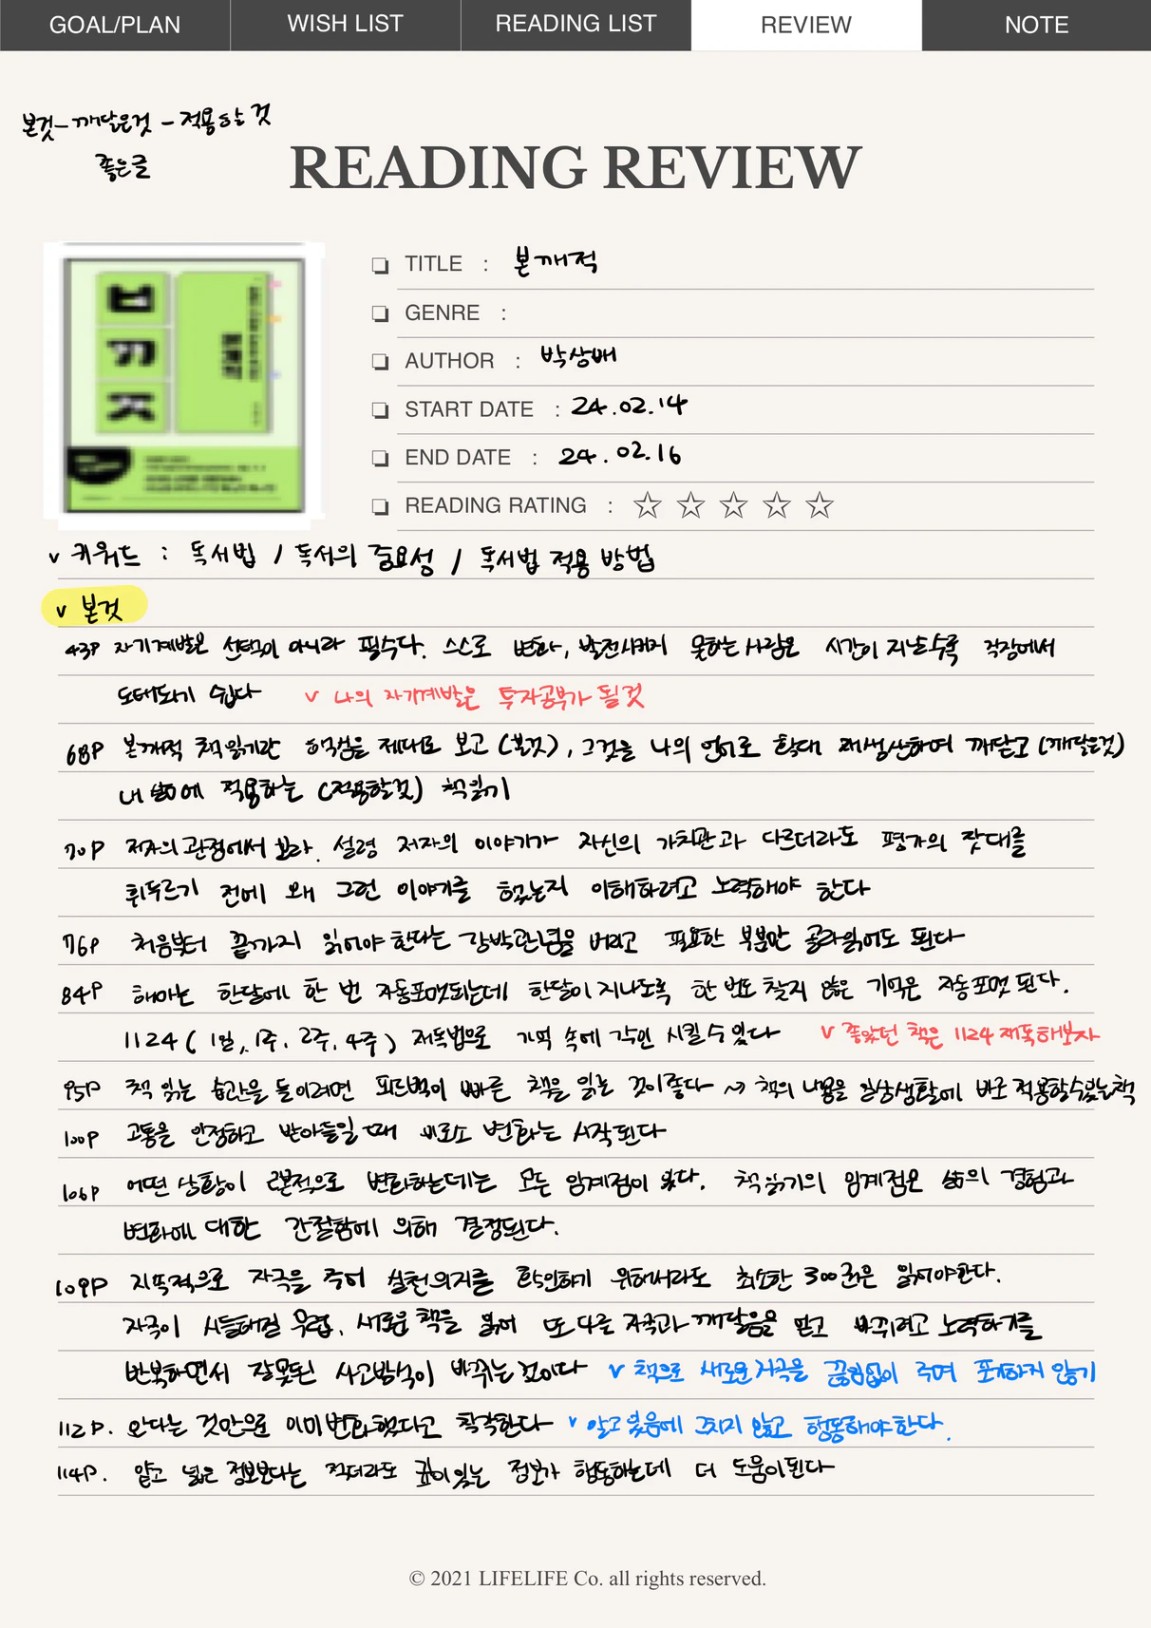 GOAL/PLAN WISH LIST READING LIST REVIEW NOTE
본것-깨달은것-적용할 것
좋은글
READING REVIEW
TITLE : 본깨적
GENRE :
AUTHOR : 박상배
START DATE : 24.02.14
END DATE : 24.02.16
READING RATING : ☆ ☆ ☆ ☆ ☆
v 키워드 : 독서법 / 독서의 중요성 / 독서법 적용 방법
v 본것
43P 자기계발은 선택이 아니라 필수다. 스스로 변화, 발전시키지 못하는 사람은 시간이 지날수록 직장에서
도태되기 쉽다 v 나의 자기계발은 투자공부가 될것
68P 본깨적 책읽기란 핵심을 제대로 보고 (본것), 그것을 나의 언어로 확대 재생산하여 깨닫고 (깨달은것)
내 삶에 적용하는 (적용할것) 책읽기
70P 저자의 관점에서 보라. 설령 저자의 이야기가 자신의 가치관과 다르더라도 평가의 잣대를
휘두르기 전에 왜 그런 이야기를 했는지 이해하려고 노력해야 한다
76P 처음부터 끝까지 읽어야 한다는 강박관념을 버리고 필요한 부분만 골라읽어도 된다
84P 해마는 한달에 한 번 자동포맷되는데 한달이 지나도록 한 번도 찾지 않은 기억은 자동포맷 된다.
1124 ( 1일, 1주, 2주, 4주 ) 재독법으로 기억 속에 각인 시킬 수 있다 v 좋았던 책은 1124 재독해보자
95P 책 읽는 습관을 들이려면 피드백이 빠른 책을 읽는 것이좋다 ~> 책의 내용을 일상생활에 바로 적용할수있는책
100P 고통을 인정하고 받아들일 때 비로소 변화는 시작된다
106P 어떤 상황이 근본적으로 변화하는데는 모든 임계점이 있다. 책읽기의 임계점은 삶의 경험과
변화에 대한 간절함에 의해 결정된다.
109P 지속적으로 자극을 주어 실천의지를 확인하기 위해서라도 최소한 300권은 읽어야한다.
자극이 시들해질 무렵, 새로운 책을 읽어 또 다른 자극과 깨달음을 받고 바뀌려고 노력하기를
반복하면서 잘못된 사고방식이 바뀌는 것이다 v 책으로 새로운 자극을 끊임없이 주며 포기하지 않기
112P. 안다는 것만으로 이미 변화했다고 착각한다 v 알고 있음에 그치지 않고 행동해야한다.
114P. 얕고 넓은 정보보다는 적더라도 깊이있는 정보가 행동하는데 더 도움이된다
© 2021 LIFELIFE Co. all rights reserved.